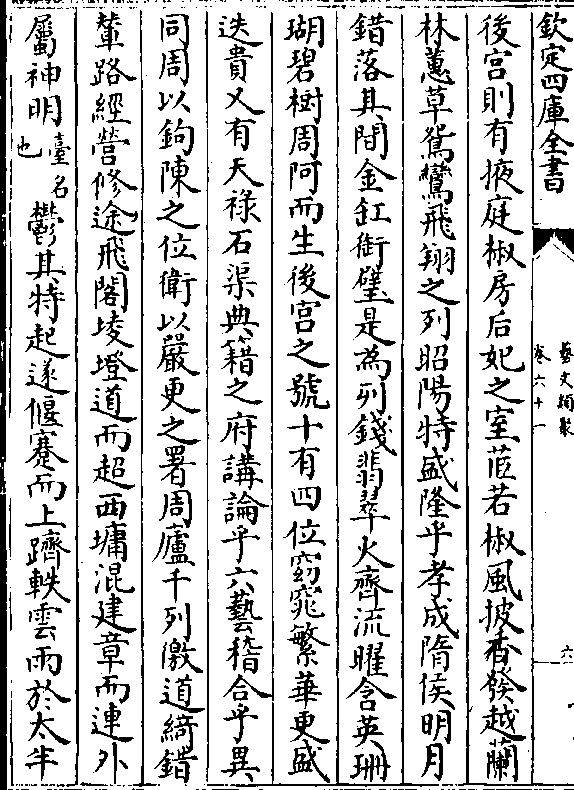 欽定四庫全書
藝文類聚
卷六十一
六
後宮則有掖庭椒房后妃之室茝若椒風披香發越蘭
林蕙草鴛鸞飛翔之列昭陽特盛隆乎孝成隋侯明月
錯落其間金釭銜璧是為列錢翡翠火齊流曜含英珊
瑚碧樹周阿而生後宮之號十有四位窈窕繁華更盛
迭貴又有天祿石渠典籍之府講論乎六藝稽合乎異
同周以鉤陳之位衛以嚴更之署周廬千列徼道綺錯
輦路經營修途飛閣堎墱道而超西墉混建章而連外
屬神明臺名也鬱其特起遂偃蹇而上躋軼雲雨於太半